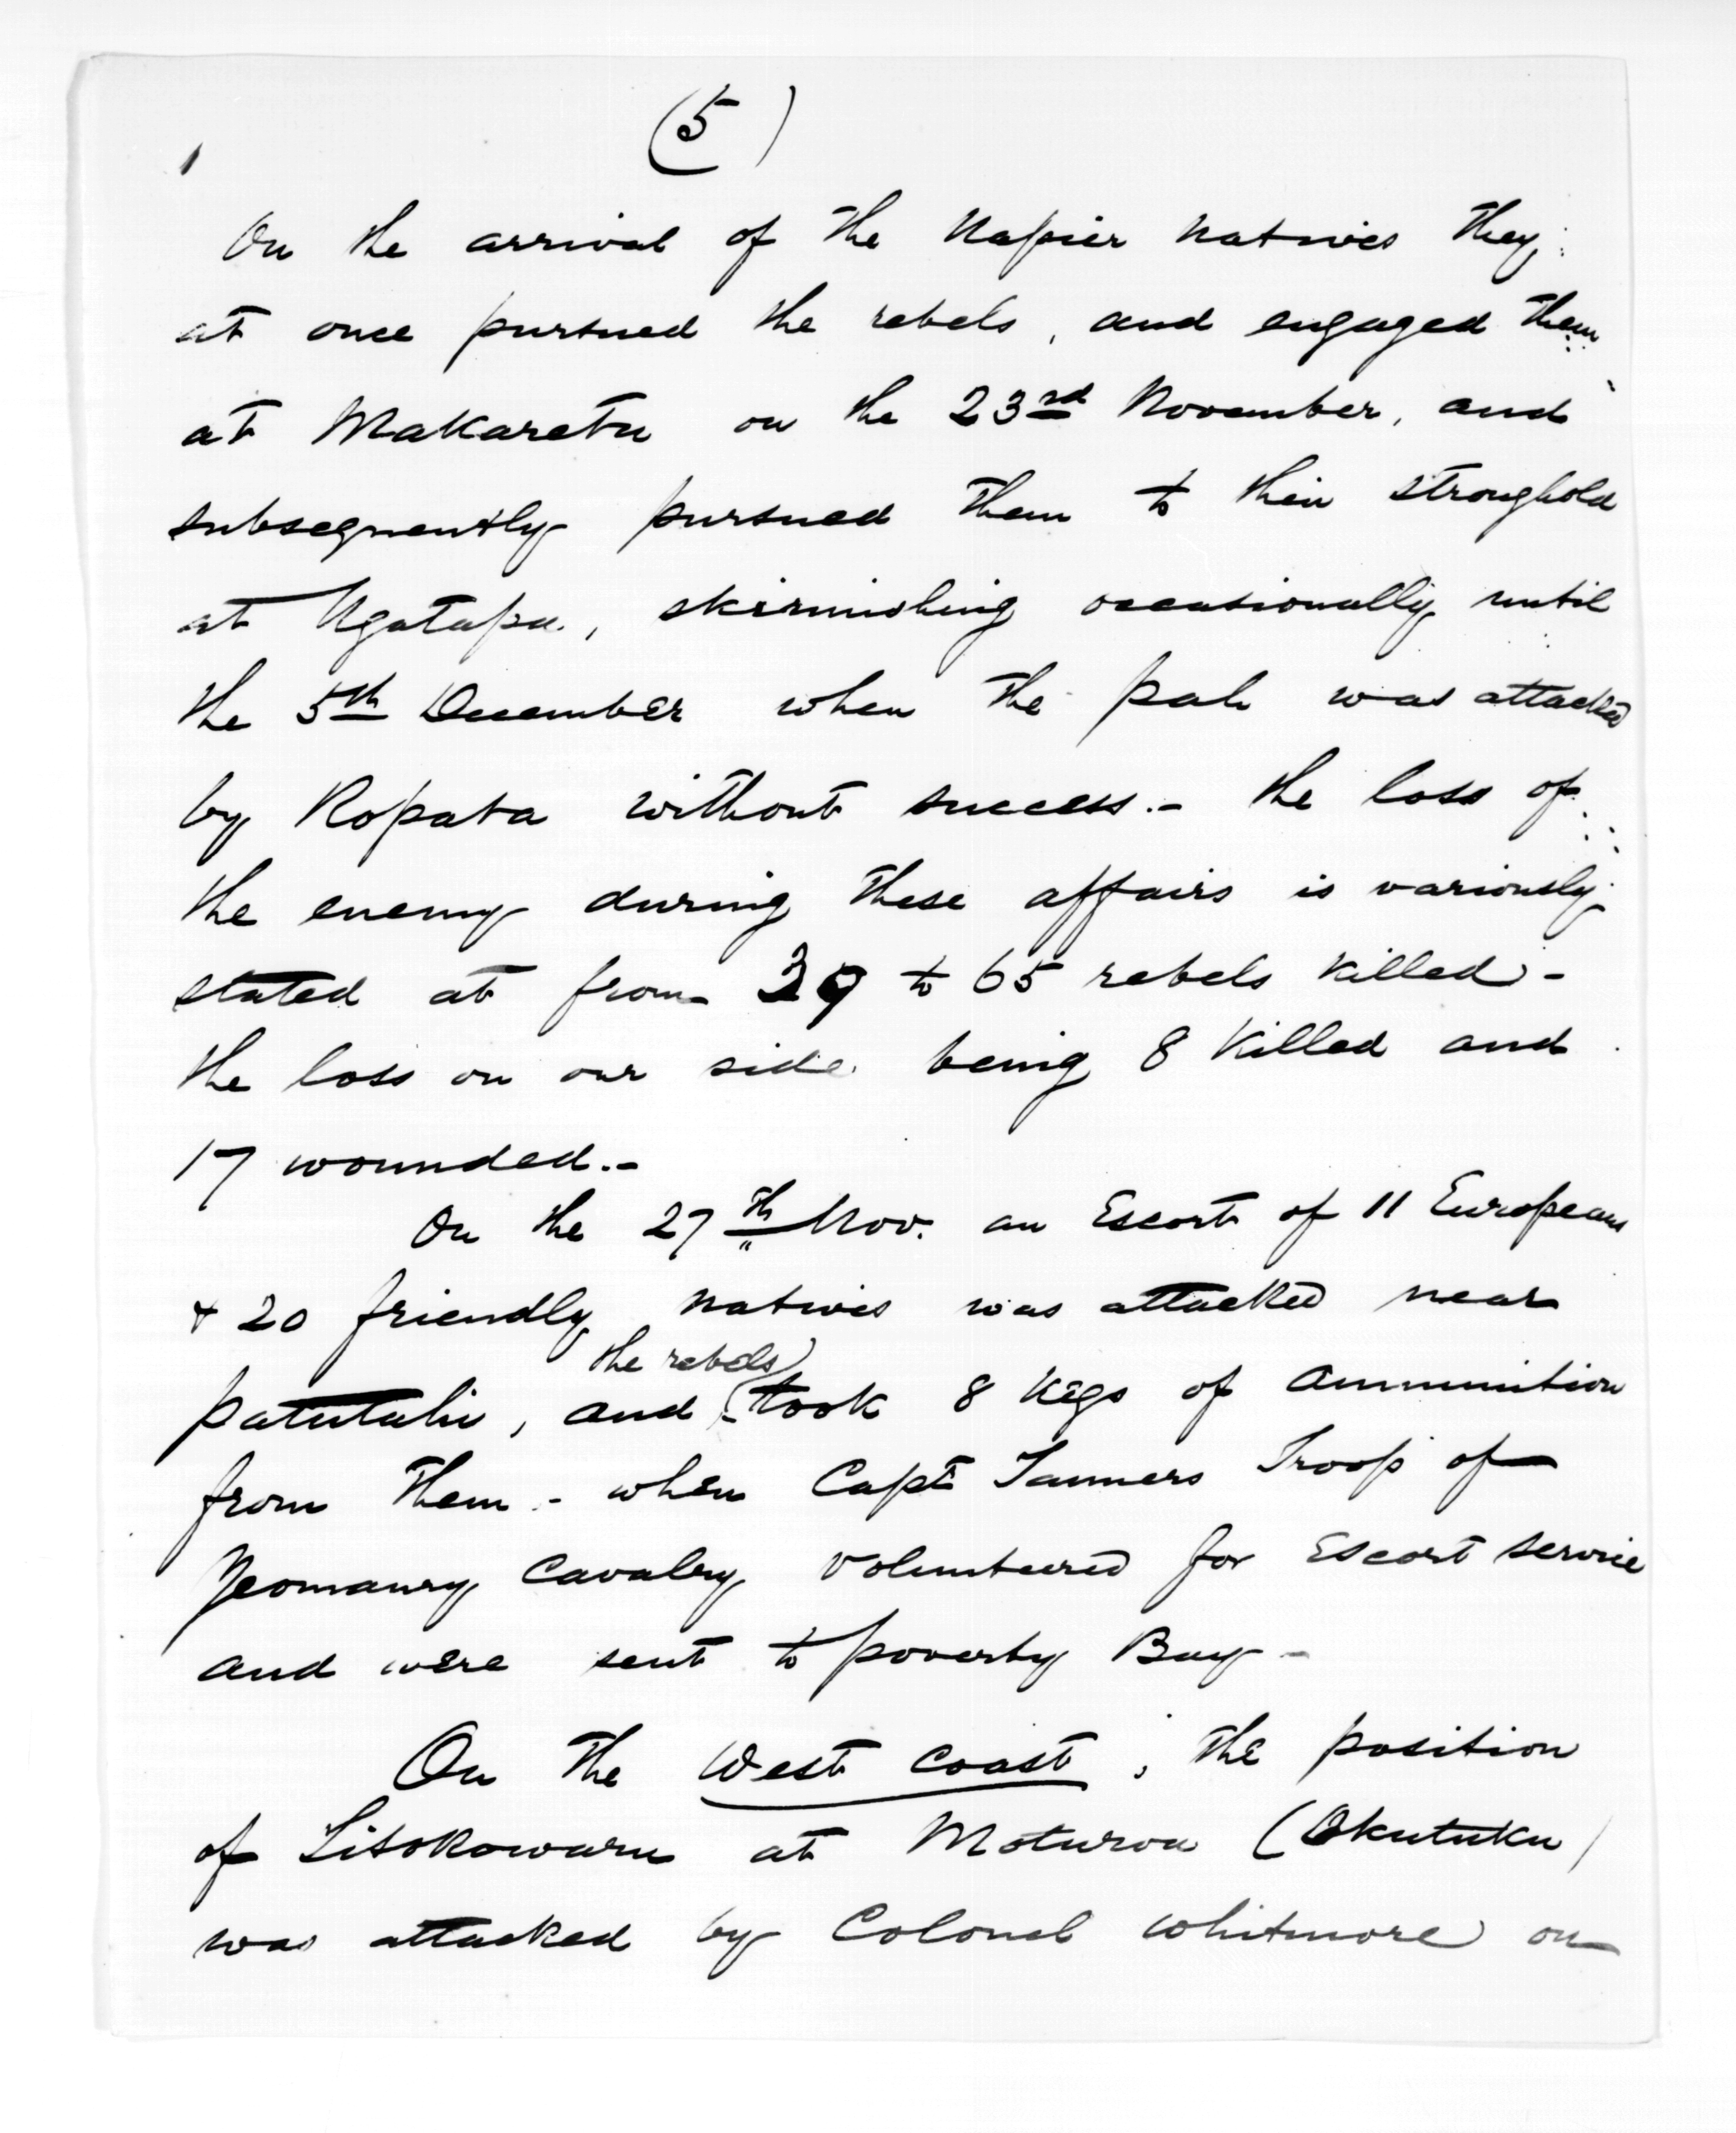 (5)
On the arrival of the Napier natives they
at once pursued the rebels, and engaged them
at Makaretu on the 23rd November, and
subsequently pursued them to their stronghold
at Ngatapa, skirmishing occasionally until
the 5th December when the pah was attacked
by Ropata without success.- the loss of
the enemy during these affairs is variously
stated at from to 65 rebels killed -
the loss on our side being 8 killed and
17 wounded.-
On the 27th Nov. an Escort of 11 Europeans
+ 20 friendly natives was attacked near
the rebels
patutahi, and took 8 kegs of ammunition
from them - when Capt Tanners Troop of
Yeomanry Cavalry volunteered for Escort service
and were sent to poverty Bay -
On the West Coast, the position
of Titokowaru at Moturoa (Okutuku)
was attacked by Colonel Whitmore on